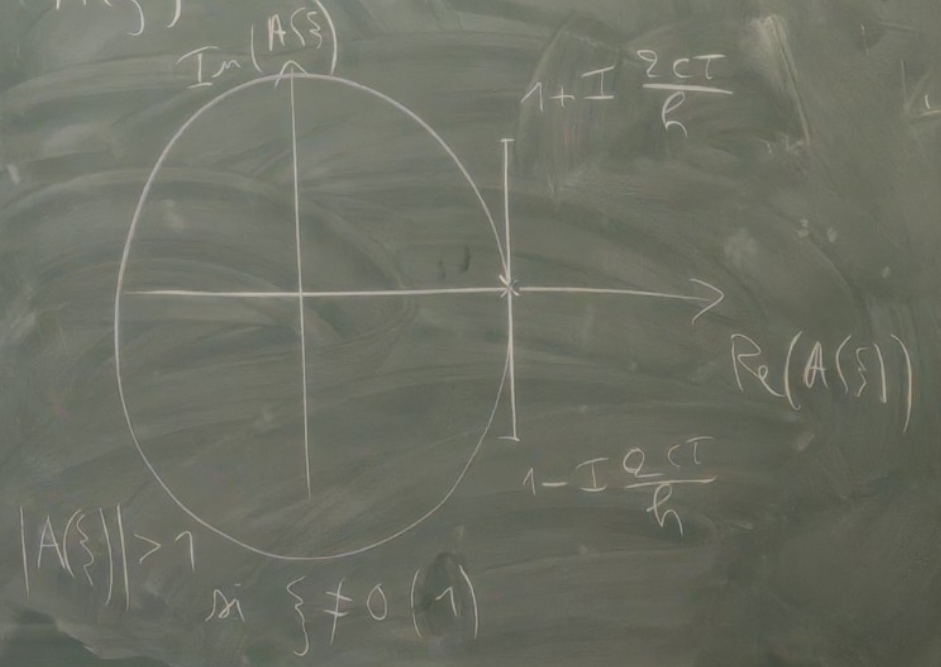 Im(A(ξ))
1 + I 2cτ/h
Re(A(ξ))
1 - I 2cτ/h
|A(ξ)| > 1
si ξ ≠ 0 (1)